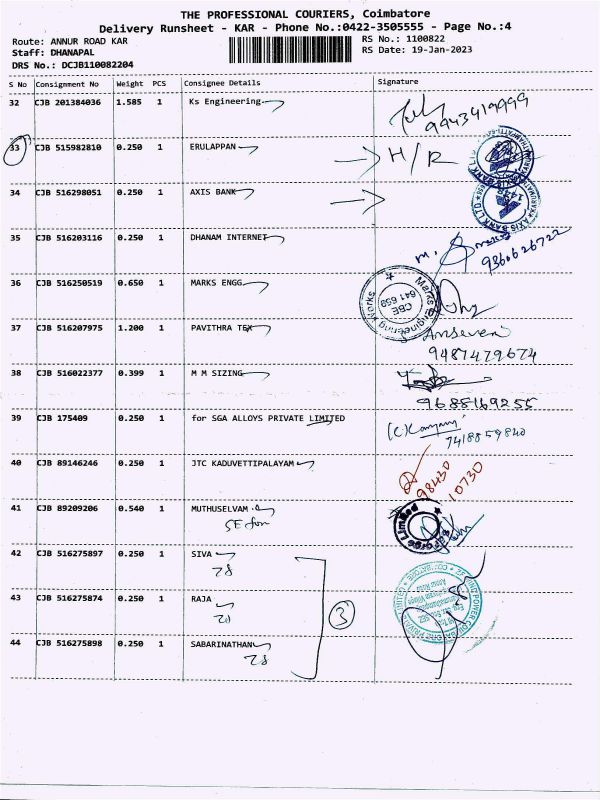 THE PROFESSIONAL COURIERS, Coimbatore
Delivery Runsheet - KAR - Phone No.:0422-3505555 - Page No.:4
Route: ANNUR ROAD KAR
RS No.: 1100822
Staff: DHANAPAL
RS Date: 19-Jan-2023
DRS No.: DCJB110082204
S No Consignment No Weight PCS Consignee Details Signature
32 CJB 201384036 1.585 1 Ks Engineering
9943419999
33 CJB 515982810 0.250 1 ERULAPPAN H/R
34 CJB 516298051 0.250 1 AXIS BANK
AXIS BANK LTD
35 CJB 516203116 0.250 1 DHANAM INTERNET
9360626722
36 CJB 516250519 0.650 1 MARKS ENGG
Marks Engineering Works
CBE
641 659
37 CJB 516207975 1.200 1 PAVITHRA TEX
9487479674
38 CJB 516022377 0.399 1 M M SIZING
9688169255
39 CJB 175409 0.250 1 for SGA ALLOYS PRIVATE LIMITED
7418859840
40 CJB 89146246 0.250 1 JTC KADUVETTIPALAYAM
98430
10730
41 CJB 89209206 0.540 1 MUTHUSELVAM
42 CJB 516275897 0.250 1 SIVA
28
43 CJB 516275874 0.250 1 RAJA
28
3
44 CJB 516275898 0.250 1 SABARINATHAN
28